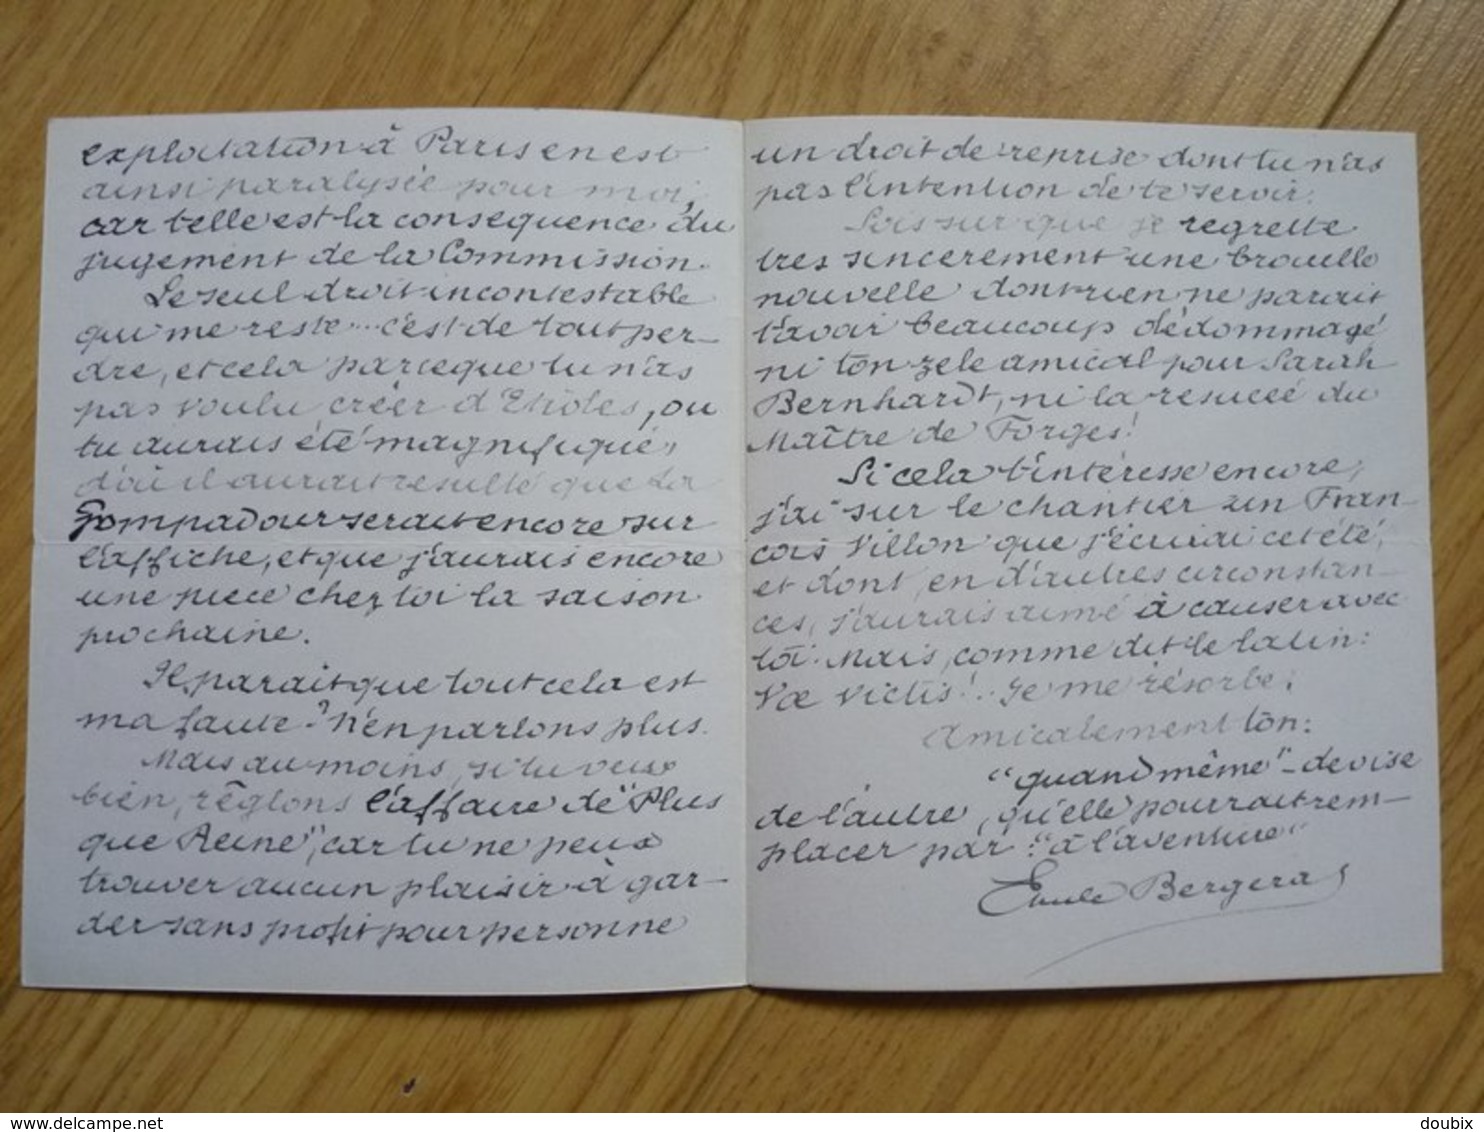 exploitation à Paris en est
ainsi paralysée pour moi,
car telle est la conséquence du
jugement de la Commission.
Le seul droit incontestable
qui me reste... c'est de tout per-
dre, et cela parceque tu n'as
pas voulu créer d'Etioles, où
tu aurais été magnifique,
d'où il aurait résulté que La
Pompadour serait encore sur
l'affiche, et que j'aurais encore
une pièce chez toi la saison
prochaine.
Il parait que tout cela est
ma faute? N'en parlons plus.
Mais au moins, si tu veux
bien, réglons l'affaire de "Plus
que Reine", car tu ne peux
trouver aucun plaisir à gar-
der sans profit pour personne
un droit de reprise dont tu n'as
pas l'intention de te servir.
Sois sur que je regrette
très sincèrement une brouille
nouvelle dont rien ne parait
t'avoir beaucoup dédommagé
ni ton zèle amical pour Sarah
Bernhardt, ni la resucée du
Maître de Forges!
Si cela t'intéresse encore,
j'ai sur le chantier un Fran-
çois Villon que j'écrirai cet été,
et dont, en d'autres circonstan-
ces, j'aurais aimé à causer avec
toi. Mais, comme dit le latin:
Væ Victis!.. Je me résorbe.
Amicalement ton:
"quand même" - devise
de l'autre, qu'elle pourrait rem-
placer par: "à l'aventure"
Emile Bergerat
delcampe.net
doubix